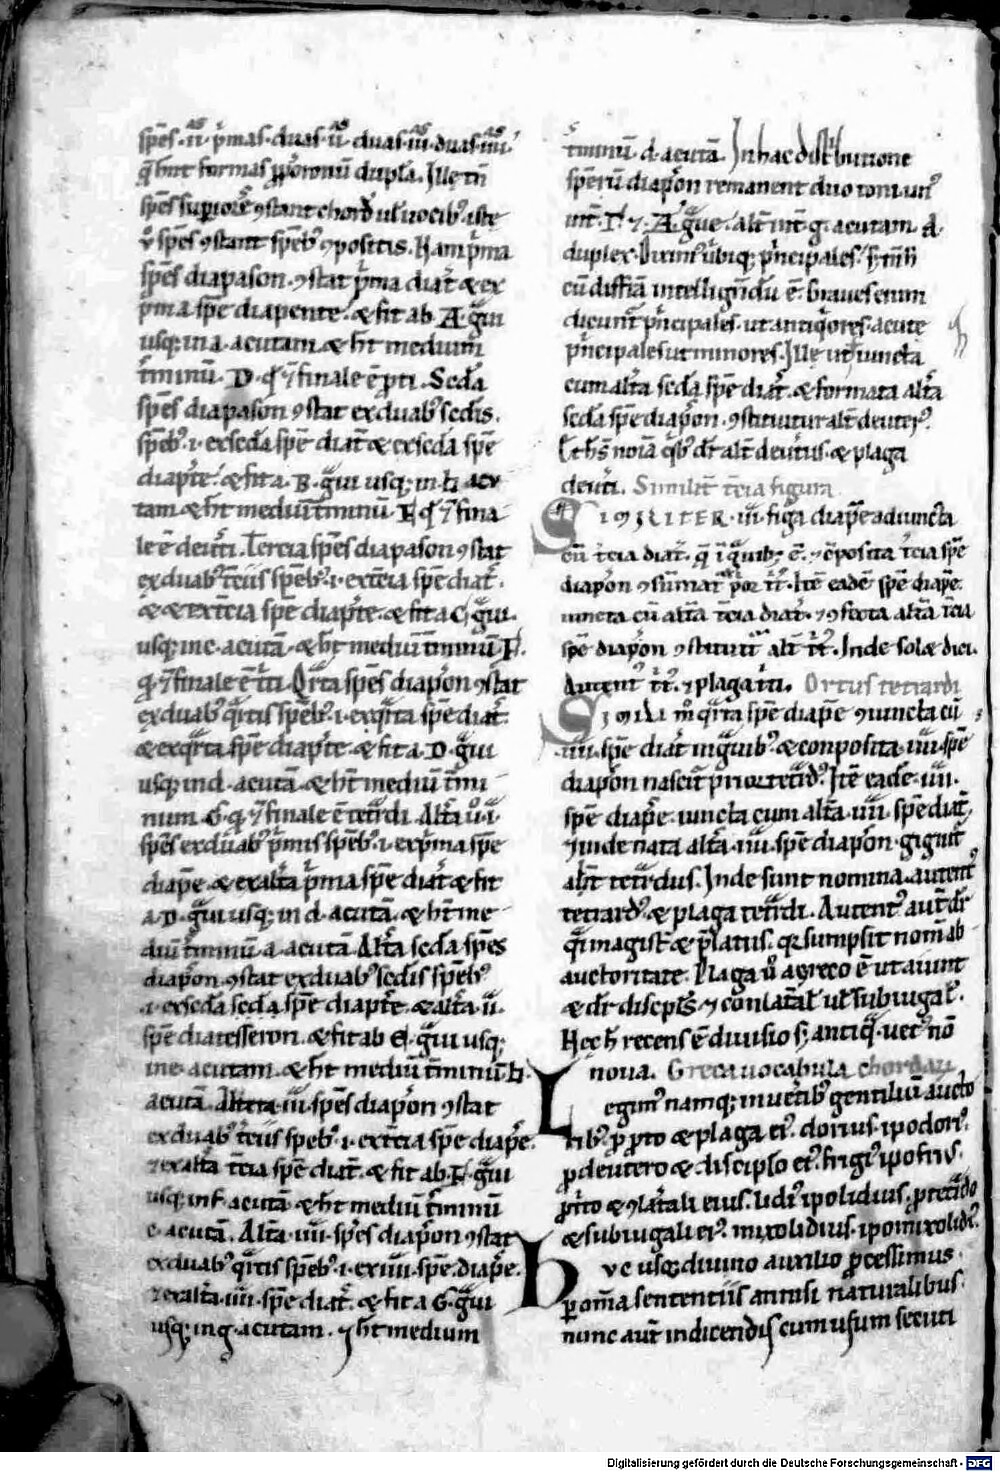 spēs .ii. p̄mas. duas .ii. duas .iii. duas .iiii.
q̄ hn̄t formas ꝓporc̄onū dupla. Illę tn̄
spēs ꝯstant chord ul' uocib; iste
ū spēs ꝯstant spēb; ꝯpositis. Nam p̄ma
spēs diapason. ꝯstat p̄ma diat̄. & ex
p̄ma spē diapente. & fit ab A. g̃ui
usq; in a. acutam. & hт̄ medium
t̄minū. D. q̄ ⁊ finale ē p̄ti. Sc̄da
spēs diapason ꝯstat ex duab; sc̄dis
spēb; .i. ex sc̄da spē diat̄ & ex sc̄da spē
diap̄te. & fit a .B. g̃ui usq; in ♮ acu
tam & ht̄ mediū t̄minū. E q̄ ⁊ fina
le ē deūti. Tercia spēs diapason ꝯstat
ex duab; t̄ciis spēb; .i. ex t̄cia spē diat̄.
& ex t̄cia spē diap̄te. & fit a C. g̃ui.
usq; in c. acutā. & ht̄ mediū t̄minū F.
q̄ ⁊ finale ē t̄ti. Qr̄ta spēs diap̄on ꝯstat
ex duab; q̄rtis spēb; .i. ex q̄rta spē diat̄.
& ex q̄rta spē diap̄te. & fit a .D. g̃ui
usq; in d. acutā. & ht̄ mediū t̄mi
num .G. q̄ ⁊ finale ē tet̄rdi. Alt̄a ū .i.
spēs ex duab; p̄mis spēb; .i. ex p̄ma spē
diap̄e. & ex alt̄a p̄ma spē diat̄. & fit
a .D. g̃ui usq; in d. acutā. & ht̄ me
diū t̄minū .a. acutā. Alt̄a sc̄da spēs
diap̄on. ꝯstat ex duab; sc̄dis spēb;
.i. ex sc̄da spē diap̄te. & alt̄a .ii.
spē diatesseron. & fit ab E. g̃ui usq;
in e. acutam. & ht̄ mediū t̄minū ♮.
acutā. Alt̄a .iii. spēs diap̄on ꝯstat
ex duab; t̄ciis spēb; .i. ex t̄cia spē diap̄e.
⁊ ex alt̄a t̄cia spē diat̄. & fit ab .F. g̃ui
usq; in f. acutā. & ht̄ mediū t̄minū
c. acutā. Alt̄a .iiii. spēs diap̄on ꝯstat
ex duab; q̄rtis spēb; .i. ex .iiii. spē. diap̄e.
⁊ ex alt̄a .iiii. spē diat̄. & fit a G. g̃ui
usq; in g. acutam. ⁊ ht̄ medium
t̄minū .d. acutā. In hac distributione
spērū diap̄on remanent duo toni un᷒
int̄ Γ. ⁊ A. g̃ue. alt̄ int̄ g. acutam. A.
duplex. Dixim᷒ ubiq; p̄ncipales.
cū diffīa intellign̄dū ē. Graues enim
dicunt᷒ p̄ncipales. ut antiq̄ores. acutę
p̄ncipales ut minores. Ille iuncta
cum alt̄a sc̄da spē diat̄. & formata alt̄a
sc̄da spē diap̄on. ꝯstituitur alt̄ deuter᷒.
noīa q̄b; dr̄ alt̄ deut̄us. & plaga
deūti. Similit̄ t̄cia figura
SIMILITER .iii. fig̃a diap̄e adiuncta
cū t̄cia diat̄. ꝯposita t̄cia spē
diap̄on prior Itē eadē spē diap̄e.
iuncta cū alt̄a t̄cia diat̄. ⁊ ꝯfecta alt̄a t̄cia
spē diap̄on ꝯstituit alt̄ t̄t̄. Inde solet dici.
Autent᷒ t̄t̄. ⁊ plaga t̄ti. Ortus tetrardi
SIMILI m̄ q̄rta spē diap̄e ꝯiuncta cū
.iiii. spē diat̄ in g̃uib; & conposita .iiii. spē
diap̄on nascit᷒ prior tet̄rd᷒. Itē eadē .iiii.
spē diap̄e. iuncta cum alt̄a .iiii. spē diat̄.
⁊ inde nata alt̄a .iiii. spē diap̄on. gignit᷒
alt̄ tet̄rdus. Inde sunt nomina. autent᷒
tetrard᷒. & plaga tet̄rdi. Autent᷒ aut̄ dr̄
q̄i magist̄ & p̄latus. qr̄ sumpsit nom̄ ab
auctoritate. Plaga ū a greco ē ut aiunt
& dr̄ discipl's ⁊ conlat̄al' ul' subiugal'.
Nec h̄ recens ē diuisio s; antiq̄. uet᷒ nō
noua. Greca uocabula chordarū
Legim᷒ namq; in uet̄ib; gentiliū aucto
rib; ꝓ p̄to & plaga ei᷒. dorius. ipodori᷒.
ꝓ deutero & discipl̄o ei᷒. frigi᷒ ipofrig᷒.
ꝓ t̄to & ꝯlat̄ali eius. lidi᷒ ipolidius. ꝓ tet̄rdo
& subiugali ei᷒. mixolidius. ipomixolidi᷒.
Huc usq; diuino auxilio ꝓcessimus
ꝑ om̄a sententiis annisi naturalibus
nunc aut̄ in dicendis cum usum secuti
Digitalisierung gefördert durch die Deutsche Forschungsgemeinschaft - DFG